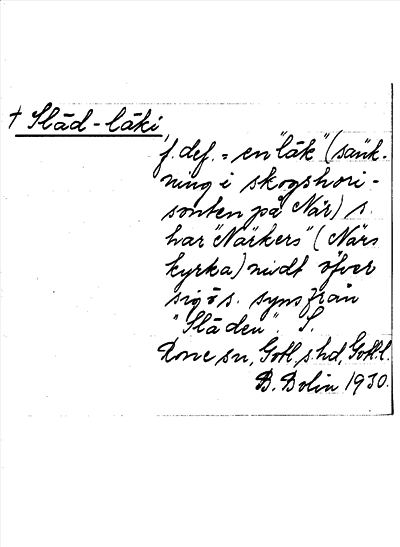 † Släd-läki,
f. def. = en "läk" (sänk-
ning i skogshori-
sonten på När) s.
har "Närkers" (Närs
kyrka) midt öfver
sig o s. syns från
"Släden". S.
Rone sn, Gotl. s. hd, Gotl. l.
B. Bolin 1930.